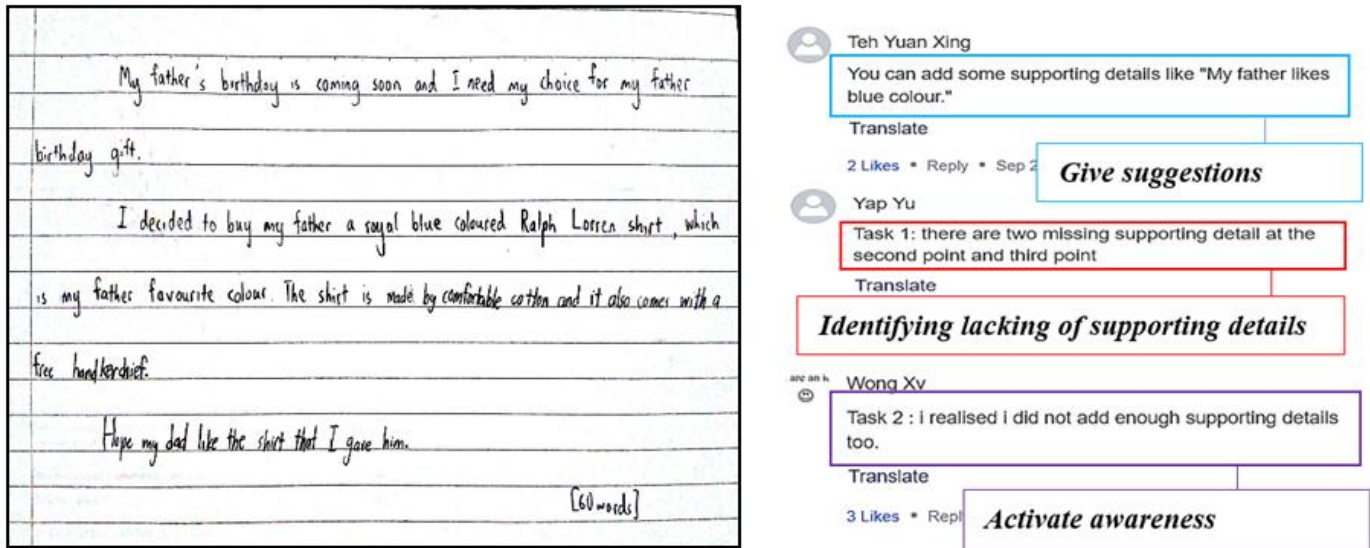 My father's birthday is coming soon and I need my choice for my father
birthday gift.
I decided to buy my father a royal blue coloured Ralph Lorren shirt, which
is my father favourite colour. The shirt is made by comfortable cotton and it also comes with a
free handkerchief.
Hope my dad like the shirt that I gave him.
[60 words]
Teh Yuan Xing
You can add some supporting details like "My father likes
blue colour."
Translate
2 Likes • Reply • Sep 2
Give suggestions
Yap Yu
Task 1: there are two missing supporting detail at the
second point and third point
Translate
Identifying lacking of supporting details
are an
Wong Xv
Task 2 : i realised i did not add enough supporting details
too.
Translate
3 Likes • Repl
Activate awareness